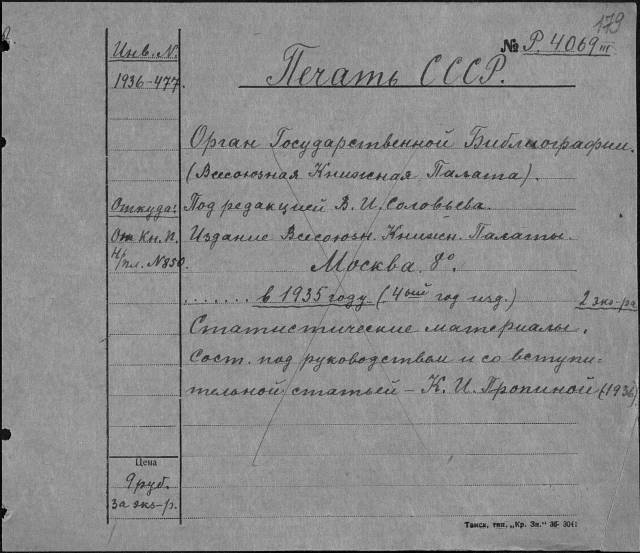 179
№ Р. 4069 III
Инв. N.
1936-477.
Печать СССР.
Орган Государственной Библиографии.
(Всесоюзная Книжная Палата).
Откуда:
Под редакцией В. И. Соловьева.
От Кн. П.
Издание Всесоюзн. Книжн. Палаты.
Н/пл. N 850.
Москва. 8°.
....... в 1935 году (4ый год изд.) 2 экз-ра
Статистические материалы.
Сост. под руководством и со вступи-
тельной статьей – К. И. Пропиной (1936)
Цена
9 руб.
за экз-р.
Танск. тип. „Кр. Зн." 36- 3041